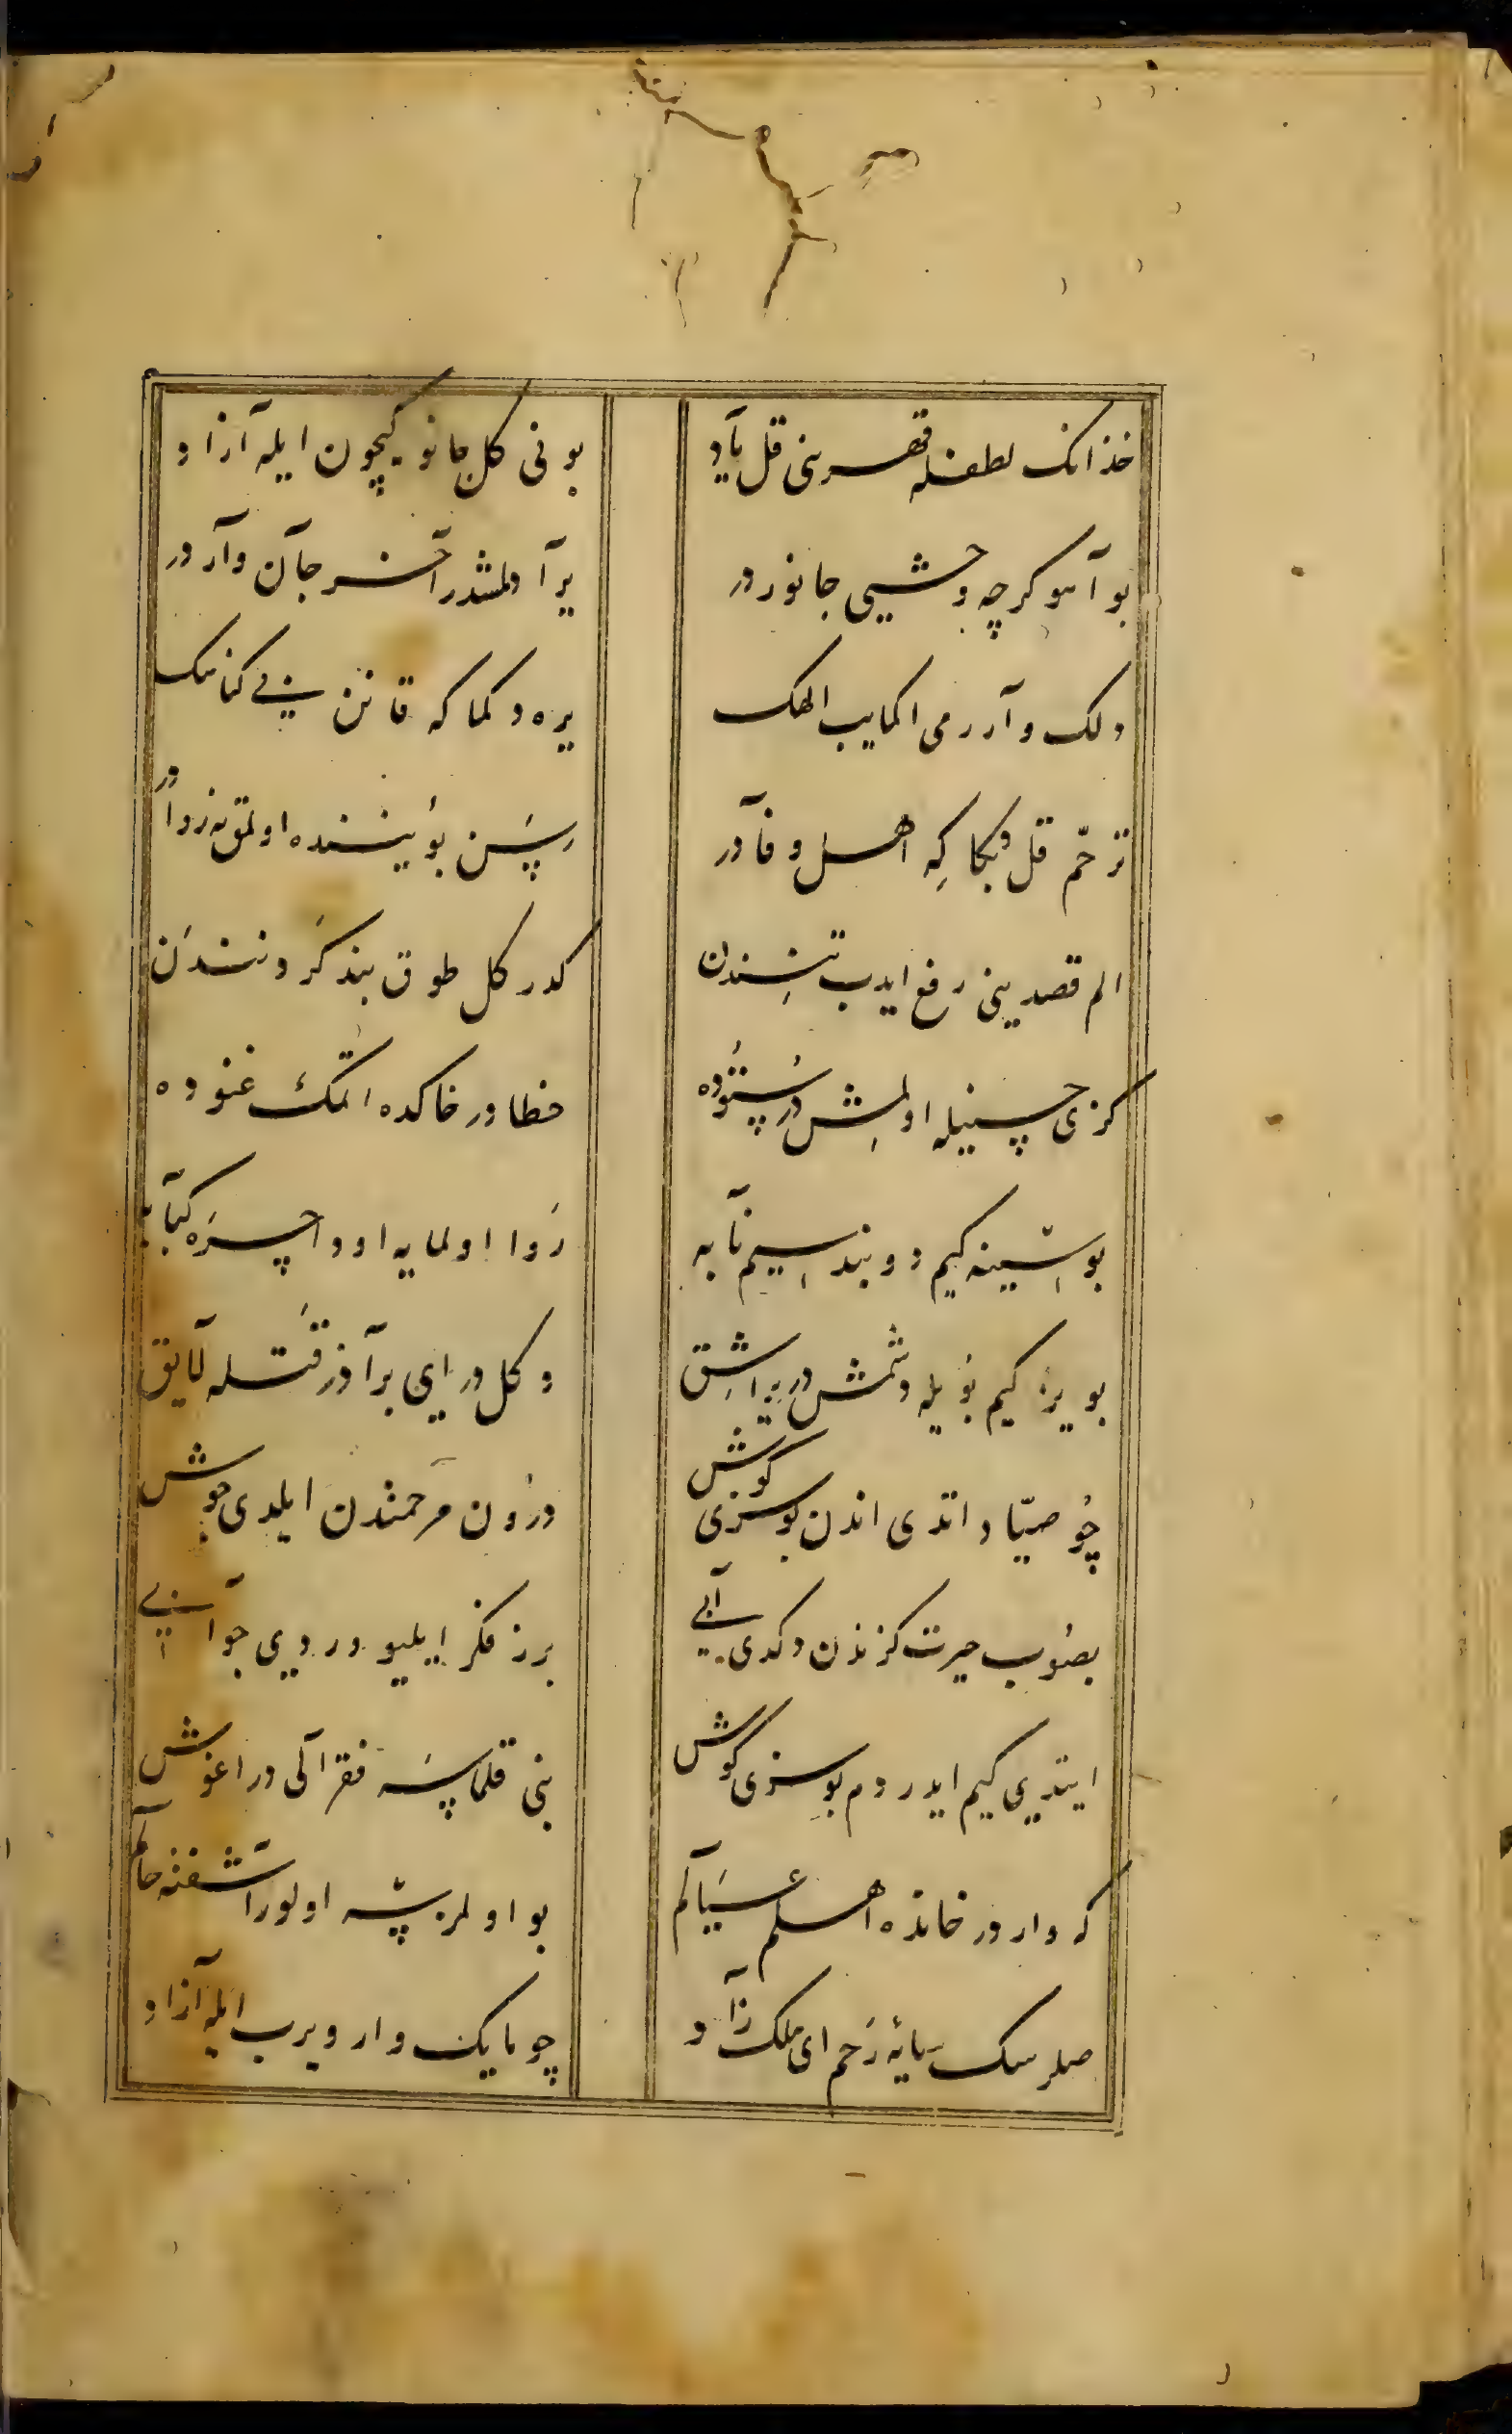 خذانک لطفله قهرینی قل یاد
بونی کل جانو یچون ایله آزاد
بو آهو کرچه وحشی جانوردر
یرآدلمشدر آخر جان وآردر
دلک وآررمی اکا یب الهک
یره دکماکه قانن بی کناهک
ترحّم قل بکا که اهل وفادر
بو اولمق نه روادر
الم قصدینی رفع ایدب تنندن
کدر کل طوق بند کردنندن
کزی حسنیله اولمش در ستوده
خطادر خاکده اتمک غنوده
بو کیم دوبند سیم نابه
روا اولمایه اوداچره کبابه
بو یره کیم بویله دشمش در براشق
دکلدر ای برآدر قتله لایق
چو صیّاد اتدی اندن بو سزی کوش
درون مرحمتدن ایلدی جوش
بصوب حیرت کزندن دکدی آبی
برز فکر ایلیو ردی جوابی
ایتدی کیم ایدردم بو سزی کوش
بنی قلماسه فقر الی در اغوش
که واردر خانده اهلم عیالم
بو اولمزسه اولور اشفته حالم
صلرسک سایۀ رحم ای ملک زاد
چو بایک وار ویرب ایله آزاد